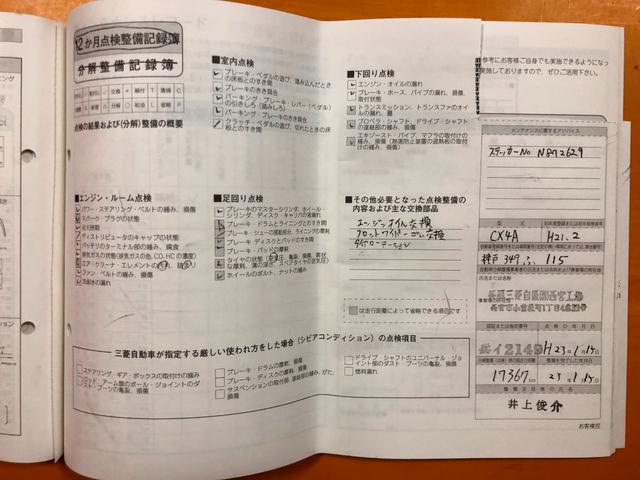 12か月点検整備記録簿
分解整備記録簿
点検の結果および(分解)整備の概要
■室内点検
ブレーキ・ペダルの遊び、踏み込んだとき
の床板とのすき間
ブレーキのきき具合
パーキング・ブレーキ・レバー(ペダル)
の引きしろ(踏みしろ)
パーキング・ブレーキのきき具合
クラッチ・ペダルの遊び、切れたときの床
板とのすき間
■下回り点検
エンジン・オイルの漏れ
ブレーキ・ホース、パイプの漏れ、損傷、
取付状態
トランスミッション、トランスファのオイ
ルの漏れ、量
プロペラ・シャフト、ドライブ・シャフト
の連結部の緩み、損傷
エキゾースト・パイプ、マフラの取付けの
緩み、損傷(熱害防止装置の遮熱板の取付
けの緩み、損傷)
■エンジン・ルーム点検
パワー・ステアリング・ベルトの緩み、損傷
スパーク・プラグの状態
点火時期
ディストリビュータのキャップの状態
バッテリのターミナル部の緩み、腐食
排気ガスの状態(排気ガスの色、CO,HCの濃度)
エア・クリーナ・エレメントの汚れ、詰まり
ファン・ベルトの緩み、損傷
冷却水の漏れ
■足回り点検
ブレーキのマスターシリンダ、ホイール・
シリンダ、ディスク・キャリパの液漏れ
ブレーキ・ドラムとライニングのすき間
ブレーキ・シューの摺動部分、ライニングの摩耗
ブレーキ・ディスクとパッドのすき間
ブレーキ・パッドの摩耗
タイヤの状態(空気圧、亀裂、損傷、異状
な摩耗、溝の深さ、スペアタイヤの空気圧)
ホイールのボルト、ナットの緩み
■その他必要となった点検整備の
内容および主な交換部品
エンジンオイル交換
フロントワイパーゴム交換
タイヤローテーション
は走行距離によって省略できる項目です
三菱自動車が指定する厳しい使われ方をした場合(シビアコンディション)の点検項目
ステアリング・ギア・ボックスの取付けの緩み
ブレーキ・ドラムの摩耗、損傷
ブレーキ・ディスクの摩耗、損傷
サスペンションの取付部、連結部の緩み、がた、
損傷
ドライブ・シャフトのユニバーサル・ジョ
イント部のダスト・ブーツの亀裂、損傷
燃料漏れ
参考にお客様ご自身でも実施できるようになっ
実施しておりますので、ぜひご活用下さい。
メンテナンスに関するアドバイス
ステッカーNo N872629
CX4A H21.2
神戸 349 ふ 115
兵イ2149 H23年1月15日
17367 km 23年1月15日
井上俊介
お客様控